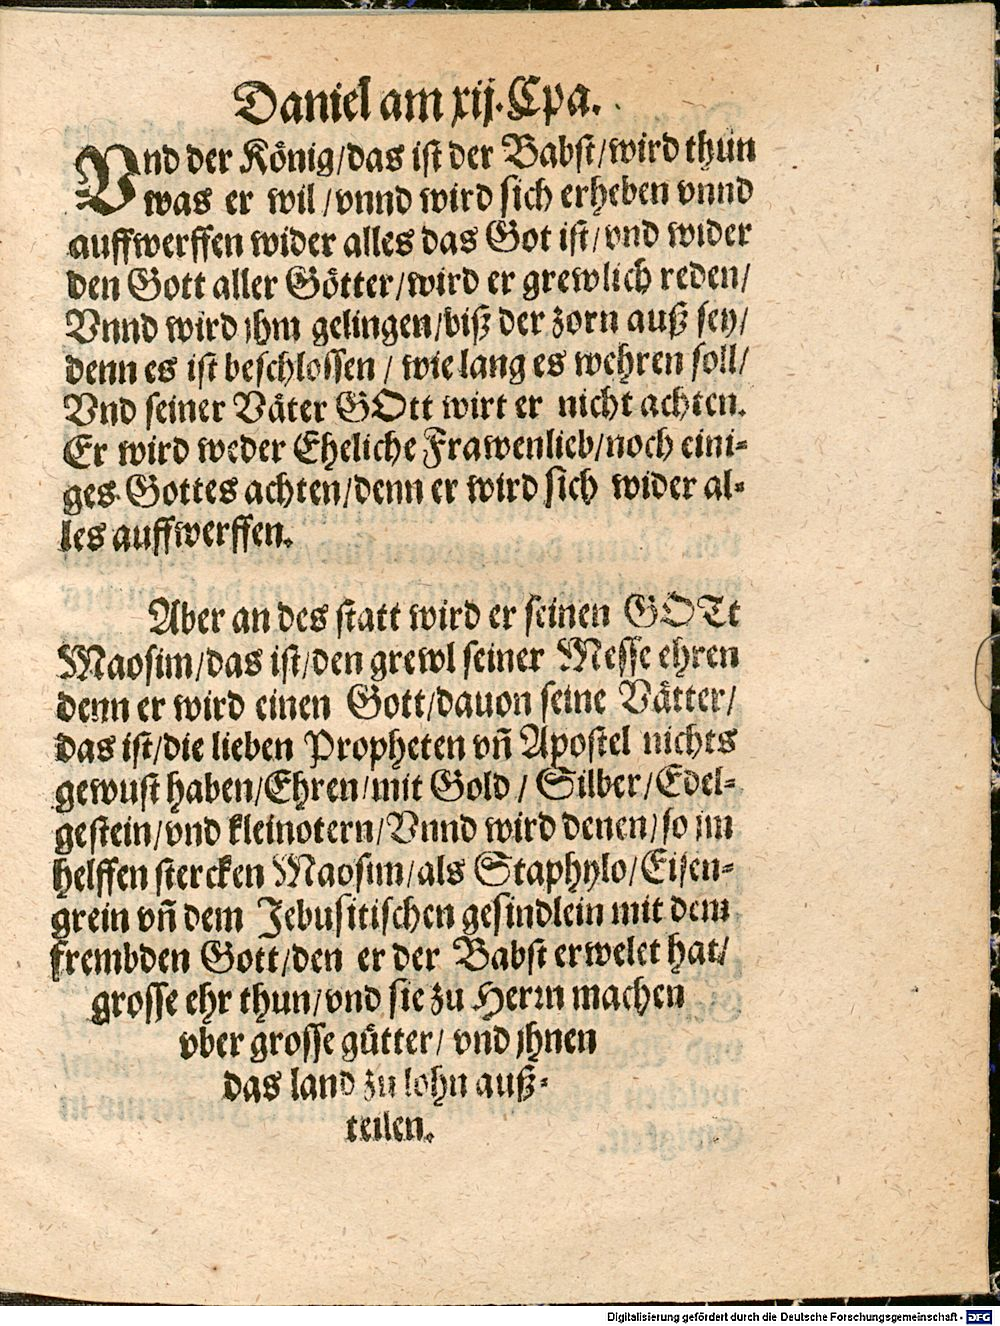 Daniel am xij. Cpa.
Vnd der König/das ist der Babst/wird thun
was er wil/vnnd wird sich erheben vnnd
auffwerffen wider alles das Got ist/vnd wider
den Gott aller Götter/wird er grewlich reden/
Vnnd wird jhm gelingen/biß der zorn auß sey/
denn es ist beschlossen / wie lang es wehren soll/
Vnd seiner Väter GOtt wirt er nicht achten.
Er wird weder Eheliche Frawenlieb/noch eini-
ges Gottes achten/denn er wird sich wider al-
les auffwerffen.
Aber an des statt wird er seinen GOTt
Maosim/das ist/den grewl seiner Messe ehren
denn er wird einen Gott/dauon seine Vätter/
das ist/die lieben Propheten vñ Apostel nichts
gewust haben/Ehren/mit Gold / Silber/Edel-
gestein/vnd kleinotern/Vnnd wird denen/so jm
helffen stercken Maosim/als Staphylo/Eisen-
grein vñ dem Jebusitischen gesindlein mit dem
frembden Gott/den er der Babst erwelet hat/
grosse ehr thun/vnd sie zu Herrn machen
vber grosse gütter/ vnd jhnen
das land zu lohn auß-
teilen.
Digitalisierung gefördert durch die Deutsche Forschungsgemeinschaft - DFG